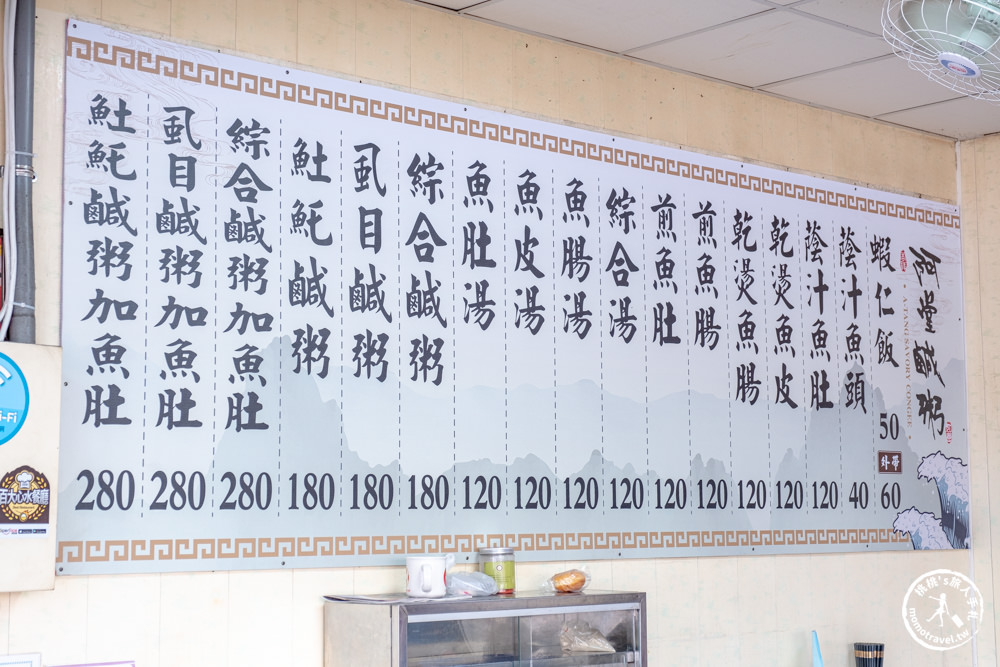 阿堂鹹粥
A-TANG SAVORY CONGEE
蝦仁飯 50
外帶 60
蔭汁魚頭 40
蔭汁魚肚 120
乾燙魚皮 120
乾燙魚腸 120
煎魚腸 120
煎魚肚 120
綜合湯 120
魚腸湯 120
魚皮湯 120
魚肚湯 120
綜合鹹粥 180
虱目鹹粥 180
䰾魠鹹粥 180
綜合鹹粥加魚肚 280
虱目鹹粥加魚肚 280
䰾魠鹹粥加魚肚 280
Wi-Fi
百大心水餐廳
桃桃's旅人手札
momotravel.tw